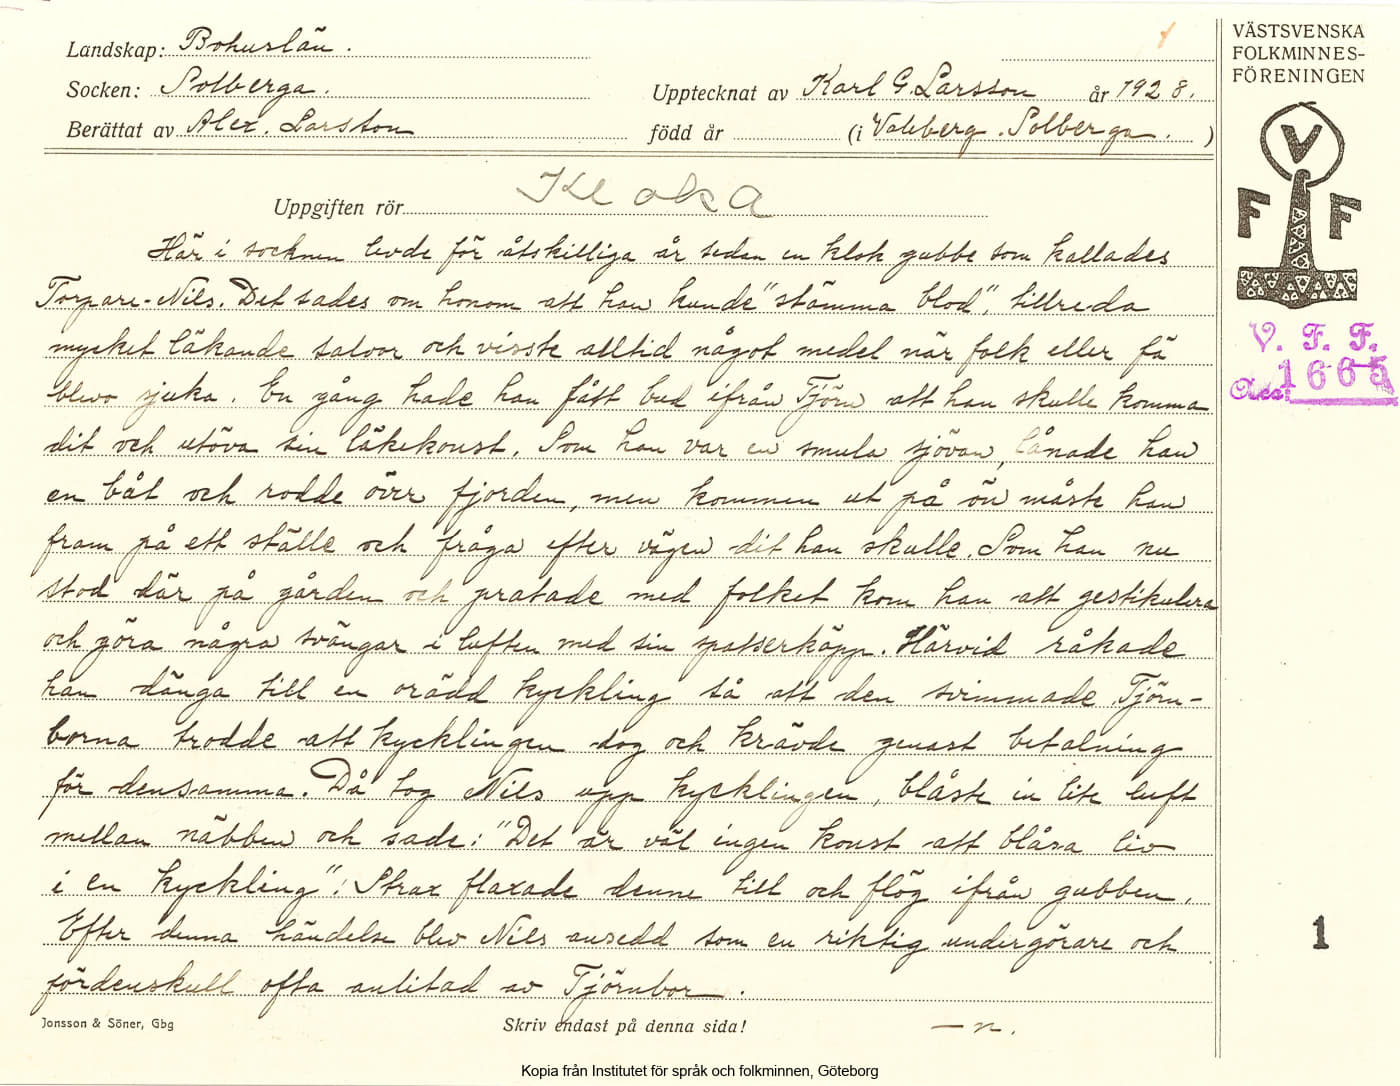 Landskap: Bohuslän.
Socken: Solberga.
Upptecknat av Karl G. Larsson år 1928.
Berättat av Alex. Larsson
född år (i Valeberg. Solberga. )
VÄSTSVENSKA
FOLKMINNES-
FÖRENINGEN
V
F F
V. F. F.
Acc. 1665
Uppgiften rör Kloka
Här i socknen levde för åtskilliga år sedan en klok gubbe som kallades
Torpare-Nils. Det sades om honom att han kunde "stämma blod", tillreda
mycket läkande salvor och visste alltid något medel när folk eller fä
blevo sjuka. En gång hade han fått bud ifrån Tjörn att han skulle komma
dit och utöva sin läkekonst. Som han var en smula sjövan, lånade han
en båt och rodde över fjorden, men kommen ut på ön måste han
fram på ett ställe och fråga efter vägen dit han skulle. Som han nu
stod där på gården och pratade med folket kom han att gestikulera
och göra några svängar i luften med sin spatserkäpp. Härvid råkade
han dänga till en orädd kyckling så att den svimmade. Tjörn-
borna trodde att kycklingen dog och krävde genast betalning
för densamma. Då tog Nils upp kycklingen, blåste in lite luft
mellan näbben och sade: "Det är väl ingen konst att blåsa liv
i en kyckling". Strax flaxade denne till och flög ifrån gubben.
Efter denna händelse blev Nils ansedd som en riktig undergörare och
fördenskull ofta anlitad av Tjörnbor.
1
Jonsson & Söner, Gbg
Skriv endast på denna sida!
—n.
Kopia från Institutet för språk och folkminnen, Göteborg